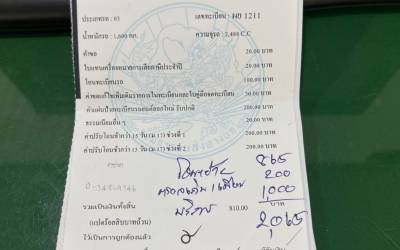 ประเภทรถ : 03 เลขทะเบียน : ผย 1211
น้ำหนักรถ : 1,600 กก. ความจุรถ : 2,488 C.C
ค่าขอ 20.00 บาท
ใบแทนเครื่องหมายการเสียภาษีประจำปี 20.00 บาท
โอนทะเบียนรถ 100.00 บาท
ค่าขอแก้ไขเพิ่มเติมรายการในทะเบียนและใบคู่มือจดทะเบียน 50.00 บาท
ค่าแผ่นป้ายทะเบียนรถยนต์ออกใหม่ รับปกติ 200.00 บาท
ธรรมเนียมอื่น ๆ 20.00 บาท
ค่าปรับโอนช้ากว่า 15 วัน (ม.17) ช่วงที่ 1 200.00 บาท
ค่าปรับโอนช้ากว่า 15 วัน (ม.17) ช่วงที่ 2 200.00 บาท
865
200
1,000
บริการ
รวมเป็นเงินทั้งสิ้น 810.00 บาท
2,065
(แปดร้อยสิบบาทถ้วน)
ไว้เป็นการถูกต้องแล้ว